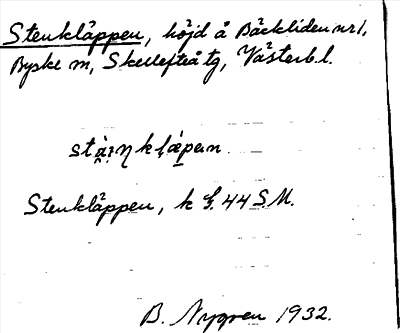 Stenkläppen, höjd å Bäckliden nr 1,
Byske sn, Skellefteå tg, Västerb. l.
Stenkläppen, k
44 S.M.
B. Nygren 1932.